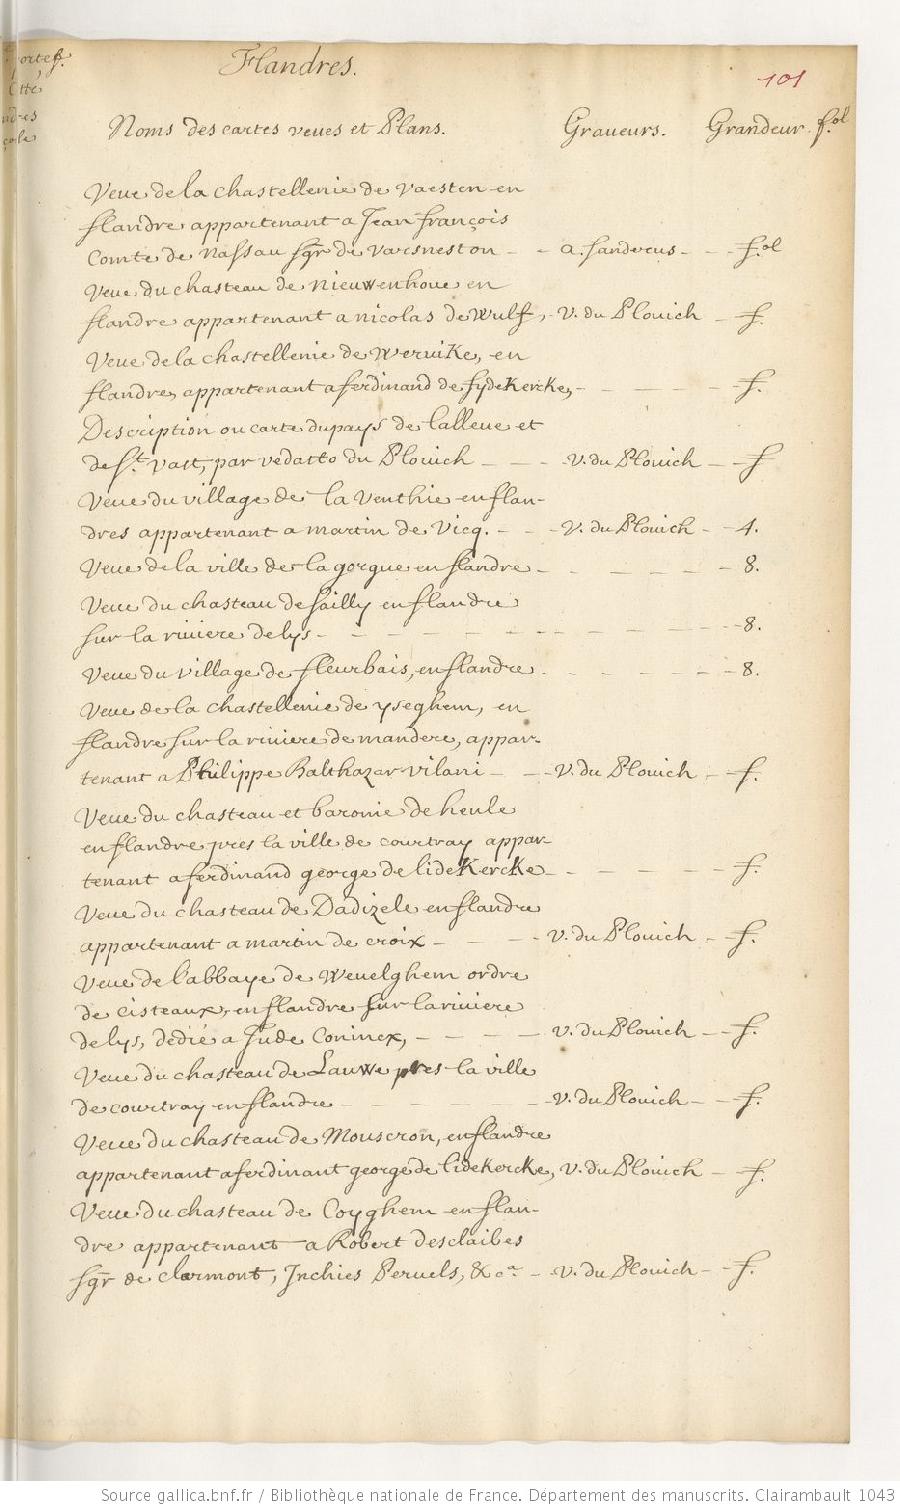 Flandres.
101
Noms des cartes veues et Plans. Graueurs. Grandeur. fol
Veue de la chastellenie de vaesten en
flandre appartenant a Jean françois
Comte de Nassau sgr de varsneston - - a. sanderus - - fol
Veue du chasteau de nieuwenhoue en
flandre appartenant a nicolas de Wulf, - v. du Plouich - f.
Veue de la chastellenie de Wervike, en
flandre, appartenant a ferdinand de sydekercke, - - - - - f.
Description ou carte du pays de lalleue et
de St. vast, par vedasto du Plouich - - - v. du Plouich - f
Veue du village de la venthie en flan-
dres appartenant a martin de Vicq. - - - v. du Plouich - - 4.
Veue de la ville de la gorgue en flandre - - - - - - 8.
Veue du chasteau de sailly en flandre
sur la riviere de lys - - - - - - - - - - - - 8.
Veue du village de fleurbais, en flandre - - - - - - 8.
Veue de la chastellenie de yseghem, en
flandre sur la riviere de mandere, appar-
tenant a Philippe Balthazar vilani - - - v. du Plouich - f.
Veue du chasteau et baronie de heule
en flandre pres la ville de courtray appar-
tenant a ferdinand george de lidekercke - - - - - - f.
Veue du chasteau de Dadizele en flandre
appartenant a martin de croix - - - - v. du Plouich - f.
Veue de l'abbaye de Wevelghem ordre
de cisteaux, en flandre sur la riviere
de lys, dedié a Jude Coninex, - - - - - v. du Plouich - - f.
Veue du chasteau de Lauwe pres la ville
de courtray en flandre - - - - - - v. du Plouich - - f.
Veue du chasteau de Mouscron, en flandre
appartenant a ferdinant george de lidekercke, v. du Plouich - f.
Veue du chasteau de Coyghem en flan-
dre appartenant a Robert desclaibes
sgr de clermont, Inchies Peruels, &ca - v. du Plouich - - f.
Source gallica.bnf.fr / Bibliothèque nationale de France. Département des manuscrits. Clairambault 1043